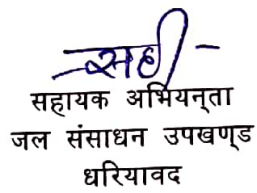 सही
सहायक अभियन्ता
जल संसाधन उपखण्ड
धरियावद